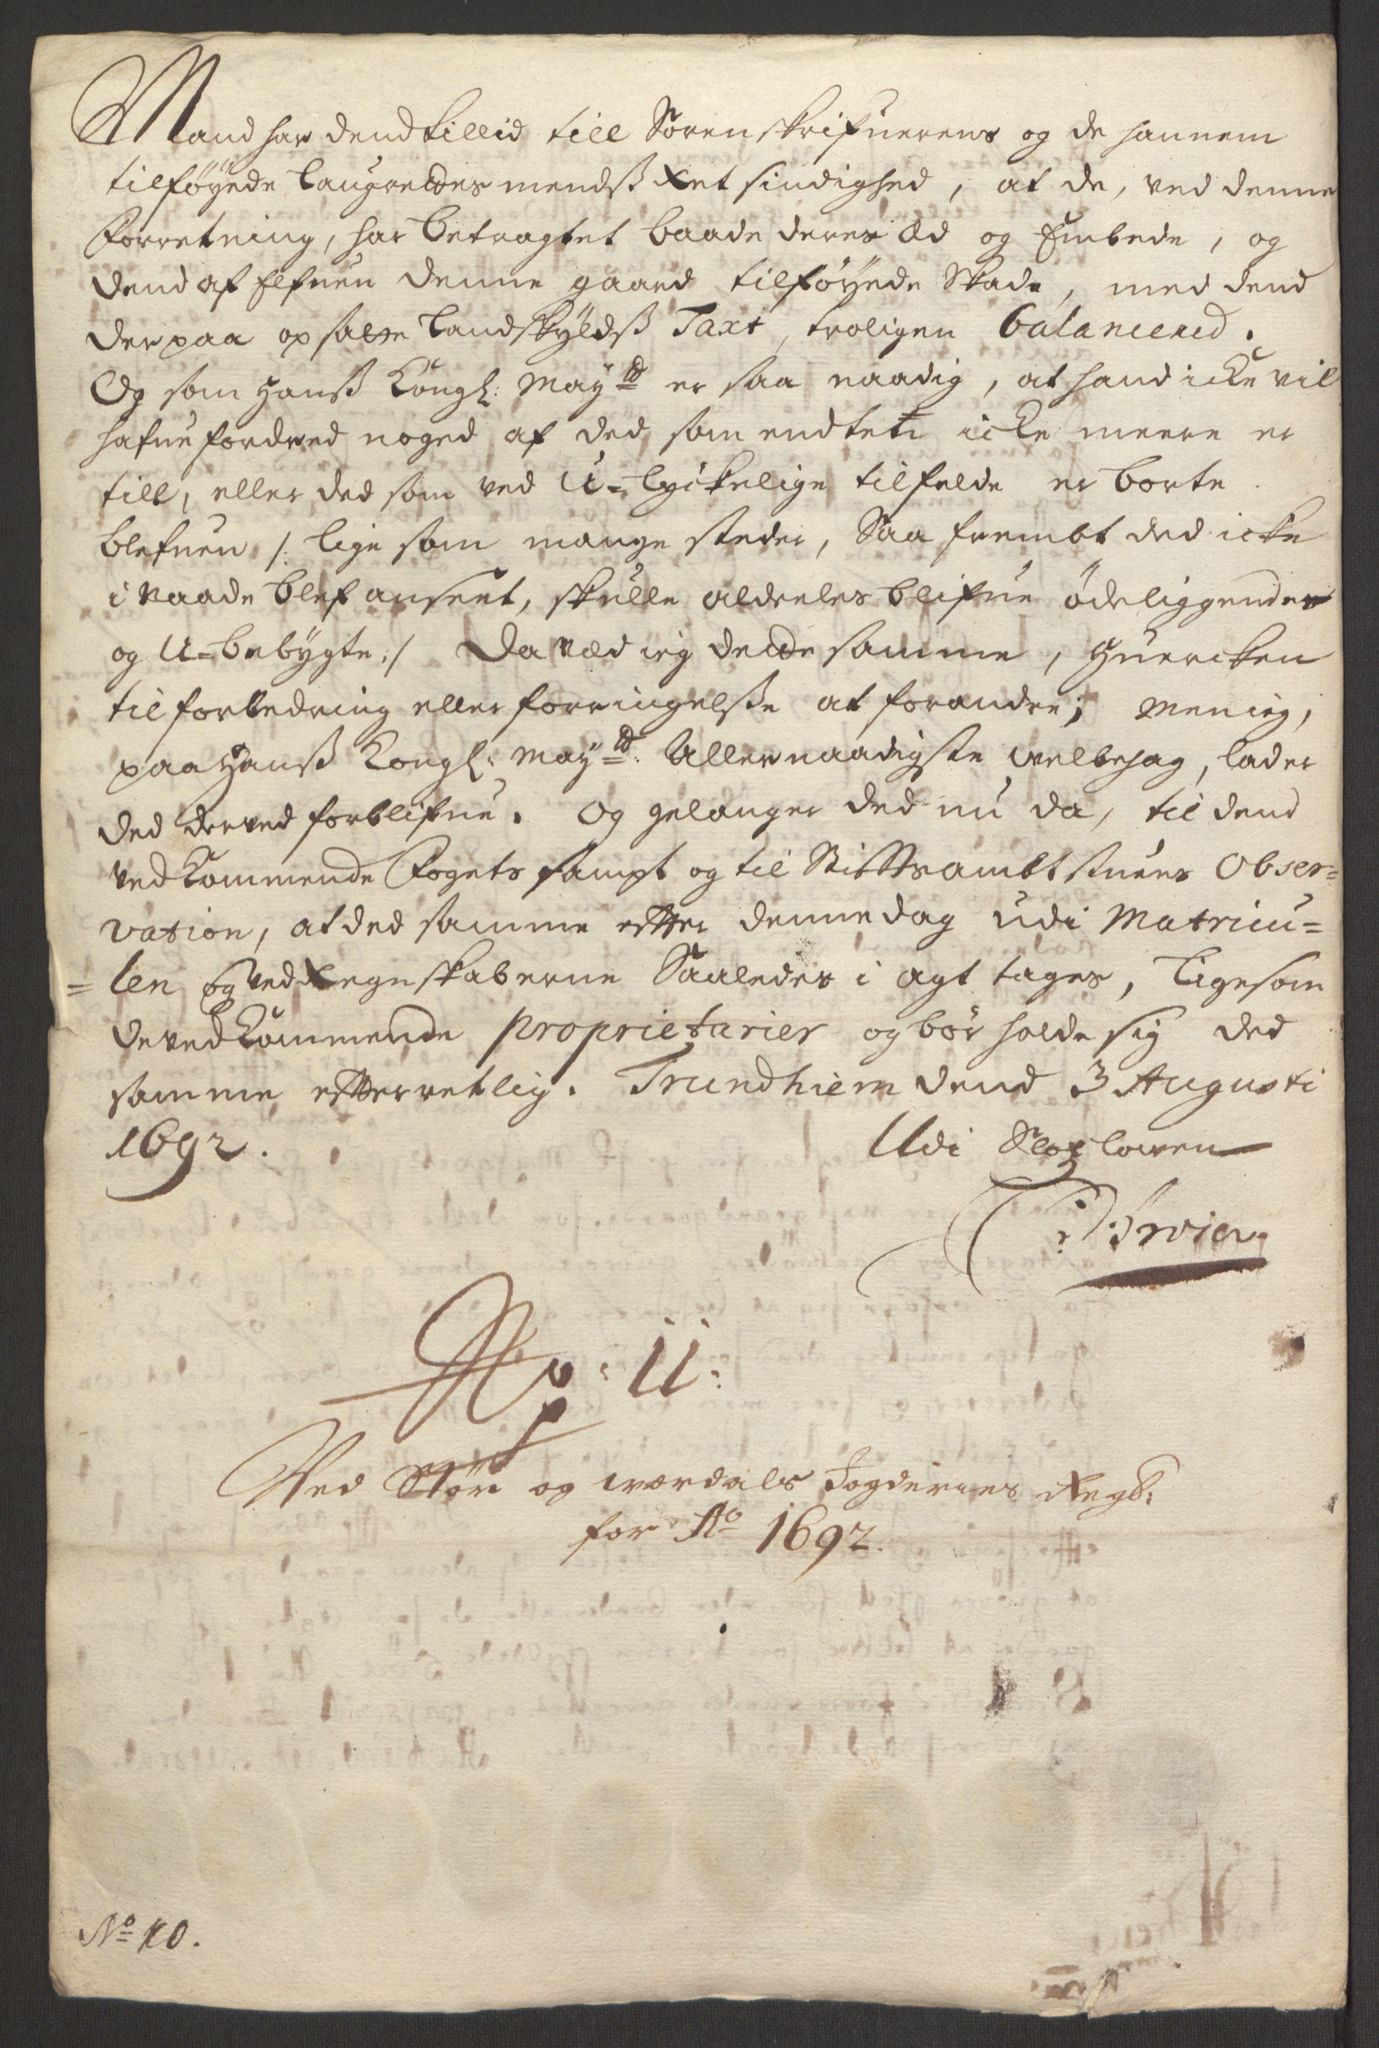 Mand har dend tillid till Sorenskrifuerens og de hannem
tilføyede Laugrettes mendsß Retsindighed, at de, ved denne
Forretning, har betragtet baade deres Æd og Embede, og
dend af Elfuen denne gaard tilføyede Skade, med dend
der paa opsatte Landskyldsß Taxt, troligen balancered.
Og som Hansß Kongl: May:tt er saa naadig, at hand icke vil
hafue fordred noged af ded som endten icke meere er
till, eller ded som ved U-lyckelige tilfelde er borte
blefuen /: lige som mange steder, Saa frembt ded icke
i Naade blef anseet, skulle aldeeles blifue ödeliggendes
og U-bebygte :/ Da ved ieg dette samme, Huercken
til forbedring eller forringelsße at forandre; Men ieg,
paa Hansß Kongl: May:tt: Allernaadigste velbehag, lader
ded derved forblifue. Og gelanger ded nu da, til dend
vedkommende Fogets sampt og til Stifftsambtstuens Obser-
vation, at ded samme effter denne dag udi Matricu-
-len og ved Regnskaberne Saaledes i agt tages, Ligesom
de vedkommende proprietarier og bør holde sig ded
samme effterretlig. Trundhiem dend 3 Augusti
1692.
Udi Slozlowen

No: 11:
Ved Stør og Værdals Fogderies Regsk:
for Ao 1692.
No 10.